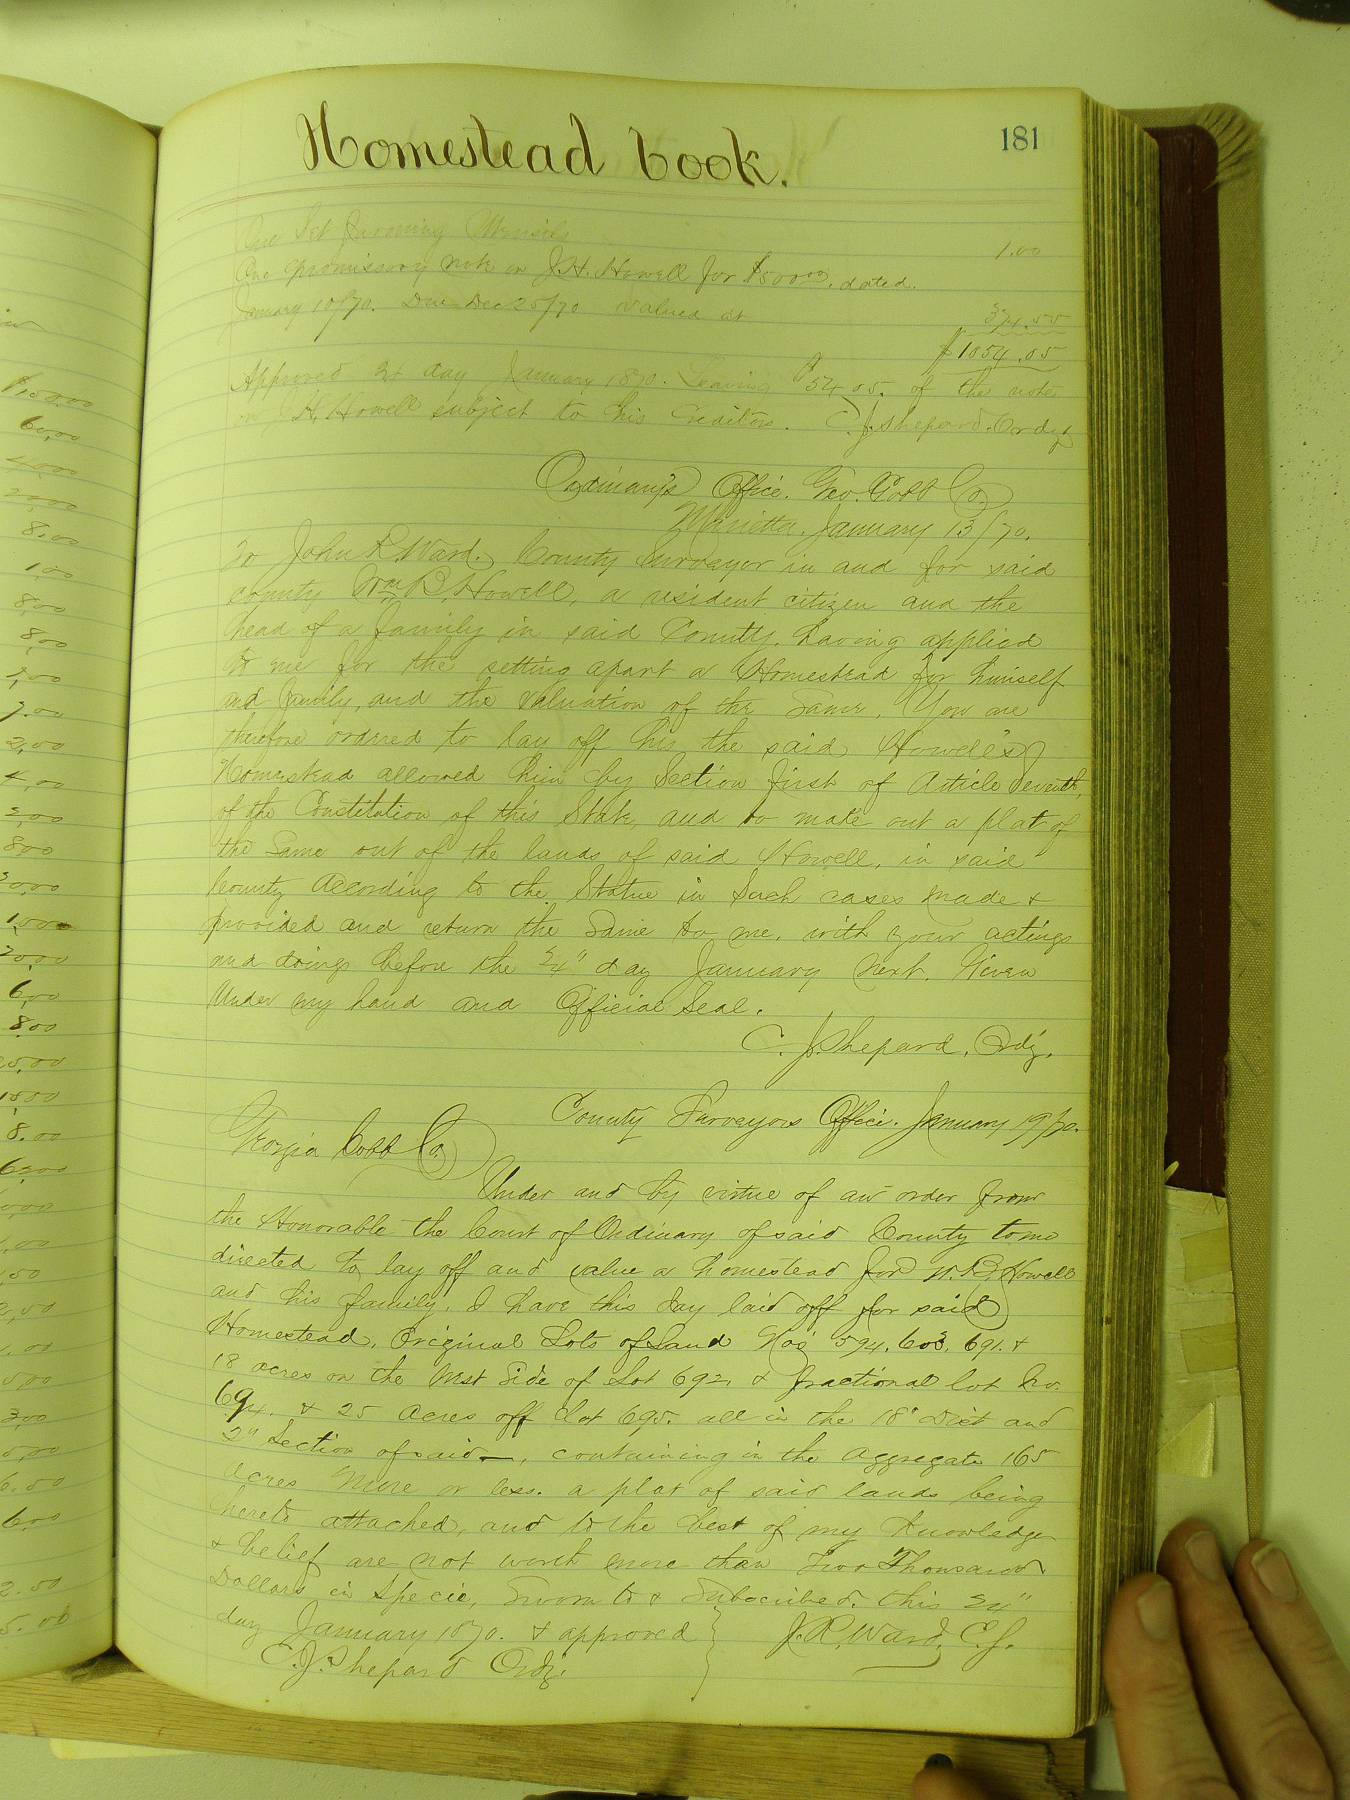 Homestead book.
181
One Set Farming Utensils 1.00
One promissory note on J.H. Howell for $500.00, dated
January 10/70. Due Dec 25/70 valued at
$1054.05
Approved 24 day January 1870. Leaving $54.05. of the note
on J.H. Howell subject to his Creditors. C.J. Shepard. Ordy
Ordinary's Office. Geo. Cobb Co.
Marietta. January 13/70.
To John R. Ward. County Surveyor in and for said
county Wm B. Howell, a resident citizen and the
head of a family in said County, having applied
to me for the setting apart a Homestead for himself
and family, and the valuation of the Same. You are
therefore ordered to lay off his the said Howell's
Homestead allowed him by Section first of Article Seventh,
of the Constitution of this State, and to make out a plat of
the Same out of the lands of said Howell, in said
County According to the Statue in Such cases made &
provided and return the Same to me, with your actings
and doings before the 24" day January next. Given
Under my hand and Official Seal.
C. J. Shepard, Ordy.
County Surveyors Office. January 19/70.
Georgia Cobb Co.
Under and by virtue of an order from
the Honorable the Court of Ordinary of said County to me
directed to lay off and value a homestead for W.B. Howell
and his family. I have this day laid off for said
Homestead, Original Lots of Land Nos 594. 603. 691. &
18 acres on the West Side of Lot 692, & fractional lot No.
694. & 25 Acres off Lot 695. all in the 18" Dist and
2" Section of said —, containing in the aggregate 165
acres More or less. a plat of said lands being
hereto attached, and to the best of my Knowledge
& belief are not worth more than Two Thousand
Dollars in Specie, Sworn to & Subscribed this 24"
day January 1870. & approved J.R. Ward, C.S.
C.J. Shepard Ordy.
$150.00
60.00
8.00
1.00
8.00
8.00
7.00
2.00
4.00
2.00
8.00
15.00
20.00
6.00
8.00
15.00
8.00
6.00